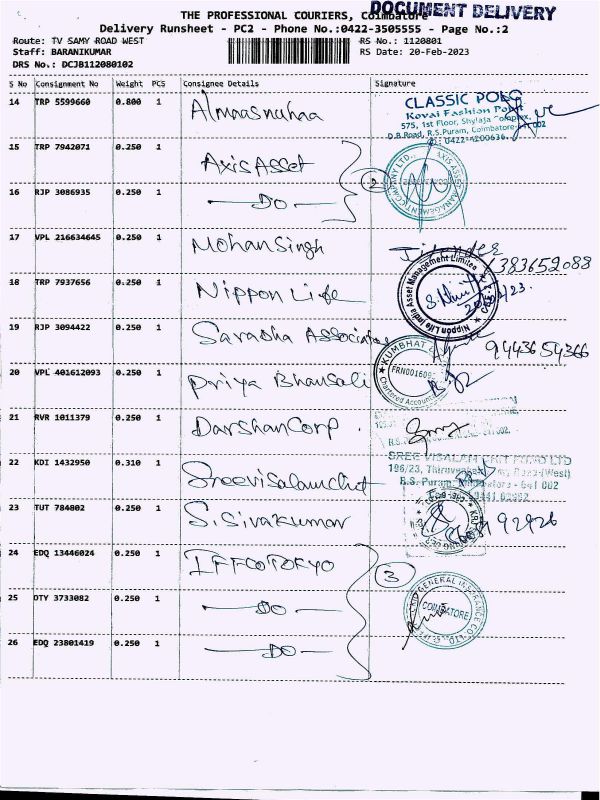 DOCUMENT DELIVERY
THE PROFESSIONAL COURIERS, Coimbatore
Delivery Runsheet - PC2 - Phone No.:0422-3505555 - Page No.:2
Route: TV SAMY ROAD WEST RS No.: 1120801
Staff: BARANIKUMAR RS Date: 20-Feb-2023
DRS No.: DCJB112080102
S No Consignment No Weight PCS Consignee Details Signature
14 TRP 5599660 0.800 1 Almaasnuhaa
CLASSIC POLO
Kovai Fashion Point
575, 1st Floor, Shylaja Complex,
D.B.Road, R.S.Puram, Coimbatore
0422-4200636
15 TRP 7942071 0.250 1 Axis Asset
AXIS ASSET MANAGEMENT COMPANY LTD.
16 RJP 3086935 0.250 1 DO 2
17 VPL 216634645 0.250 1 Mohan Singh Jitender
18 TRP 7937656 0.250 1 Nippon Life
Nippon Life India Asset Management Limited
19 RJP 3094422 0.250 1 Associates 9443654366
20 VPL 401612093 0.250 1 Priya Bhansali
KUMBHAT
Chartered Accountants
21 RVR 1011379 0.250 1 Darshan Corp.
22 KDI 1432950 0.310 1 Sreevisalamchit
SREE VISALAM CHIT FUND LTD
196/23, Road (West)
R.S. Puram, - 641 002
23 TUT 784802 0.250 1 S. Sivakumar
24 EDQ 13446024 0.250 1 IFFCO TOKYO 3
25 DTY 3733082 0.250 1 DO
GENERAL INSURANCE CO. LTD.
COIMBATORE
26 EDQ 23801419 0.250 1 DO